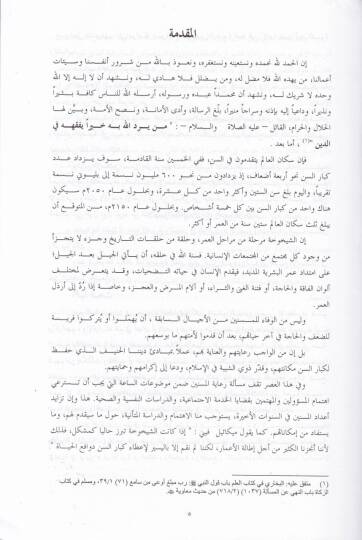 المقدمة
إن الحمد لله نحمده ونستعينه ونستغفره، ونعوذ بالله من شرور أنفسنا وسيئات
أعمالنا، من يهده الله فلا مضل له، ومن يضلل فلا هادي له، ونشهد أن لا إله إلا الله
وحده لا شريك له، ونشهد أن محمداً عبده ورسوله، أرسله للناس كافة بشيراً
ونذيراً، وداعياً إليه بإذنه وسراجاً منيراً، بلّغ الرسالة، وأدى الأمانة، ونصح الأمة، وبيّن لها
الحلال والحرام، القائل – عليه الصلاة والسلام – : " من يرد الله به خيراً يفقهه في
الدين "(١) ، أما بعد .
فإن سكان العالم يتقدمون في السن، ففي الخمسين سنة القادمة، سوف يزداد عدد
كبار السن نحو أربعة أضعاف، إذ يزدادون من نحو ٦٠٠ مليون نسمة إلى بليوني نسمة
تقريباً، واليوم بلغ سن الستين وأكثر واحد من كل عشرة، وبحلول عام ٢٠٥٠م سيكون
هناك واحد من كبار السن بين كل خمسة أشخاص، وبحلول عام ٢١٥٠م، من المتوقع أن
يبلغ ثلث سكان العالم ستين سنة من العمر أو أكثر.
إن الشيخوخة مرحلة من مراحل العمر، وحلقة من حلقات التاريخ وجزء لا يتجزأ
من وجود كل مجتمع من المجتمعات الإنسانية. فسنة الله في خلقه، أن يأتي الجيل بعد الجيل؛
على امتداد عمر البشرية المديد، فيقدم الإنسان في حياته التضحيات، وقد يتعرض لمختلف
ألوان الفاقة والحاجة، أو فتنة الغنى والثراء، أو آلام المرض والعجز، وخاصة إذا رُدَّ إلى أرذل
العمر.
وليس من الوفاء للمسنين من الأجيال السابقة ، أن يُهمَلوا أو يُتركوا فريسة
للضعف والحاجة في آخر حياتهم، بعد أن قدموا لأمتهم ما بوسعهم.
بل إن من الواجب رعايتهم والعناية بهم، عملاً بمبادئ ديننا الحنيف الذي حفظ
لكبار السن مكانتهم، وقدّر ذوي الشيبة في الإسلام، ودعا إلى إكرامهم وحمايتهم.
وفي هذا العصر تقف مسألة رعاية المسنين ضمن موضوعات الساعة التي يجب أن تسترعي
اهتمام المسؤولين والمهتمين بقضايا الخدمة الاجتماعية، والدراسات النفسية والصحية. هذا وإن تزايد
أعداد المسنين في السنوات الأخيرة، يستوجب منا الاهتمام والدراسة المتأنية، حول ما سيقدم لهم، وما
يستفاد من إمكاناتهم. كما يقول ميكائيل فيبي : " إذا كانت الشيخوخة تبرز حالياً كمشكل، فذلك
لأننا أنجزنا الكثير من أجل إطالة الأعمار، لكننا لم نقم إلا باليسير لإعطاء كبار السن دوافع الحياة "
(١) متفق عليه: البخاري في كتاب العلم باب قول النبي ﷺ: رب مبلغ أوعى من سامع (٧١) ٣٩/١، ومسلم في كتاب
الزكاة باب النهي عن المسألة (١٠٣٧) (٧١٨/٢) من حديث معاوية .
٥